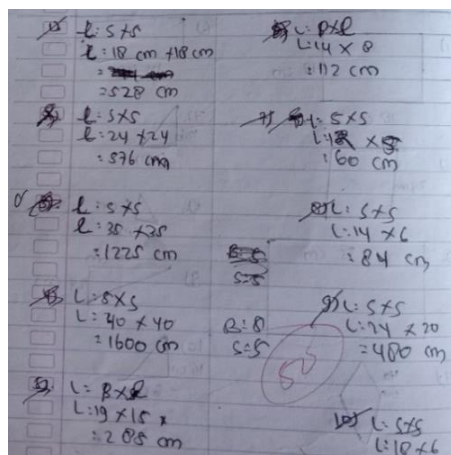 L: S×S
L: 18 cm ×18 cm
=528 cm
L: S×S
L: 24 × 24
:576 cm
L: S×S
L: 35 ×35
:1225 cm
L: S×S
L: 40 × 40
= 1600 cm
L= P×L
L:19 × 15
=285 cm
L: P×L
L:14 × 8
:112 cm
7) L: S×S
:60 cm
L: S×S
L:14 × 6
= 84 cm
S=5
9) L: S×S
L:24 × 20
=480 cm
B=8
S=5
10) L: S×S
L:18 ×6